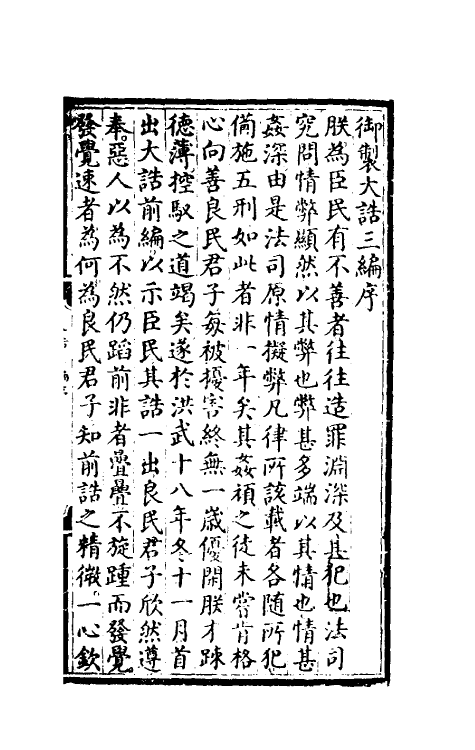 御製大誥三編序
朕為臣民有不善者往往造罪淵深及其犯也法司
究問情弊顯然以其弊也弊甚多端以其情也情甚
姦深由是法司原情擬弊凡律所該載者各隨所犯
備施五刑如此者非一年矣其姦頑之徒未嘗肯格
心向善良民君子每被擾害終無一歲優閑朕才踈
德薄控馭之道竭矣遂於洪武十八年冬十一月首
出大誥前編以示臣民其誥一出良民君子欣然遵
奉惡人以為不然仍蹈前非者疊疊不旋踵而發覺
發覺速者為何為良民君子知前誥之精微一心欽